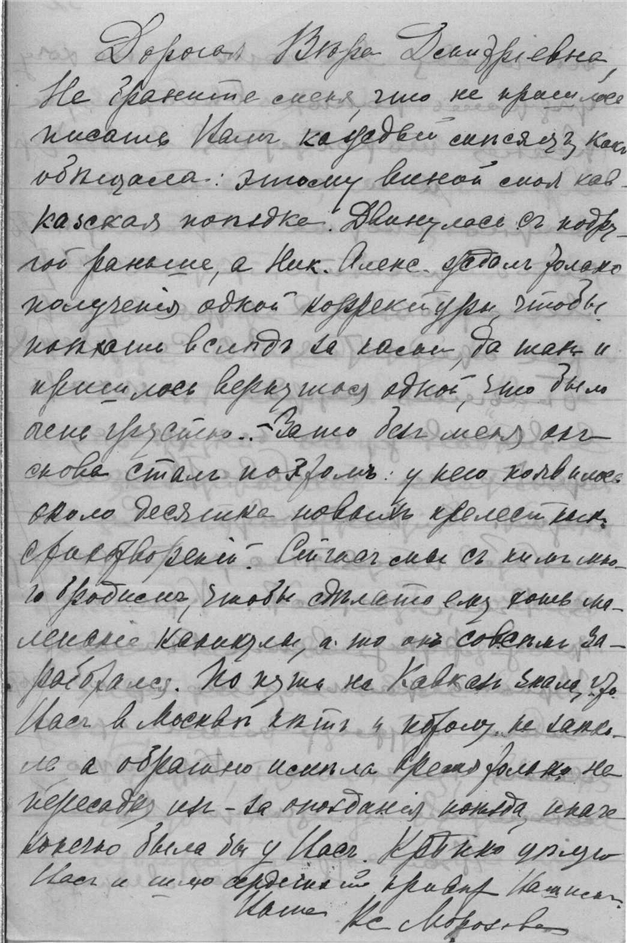 Дорогая Вѣра Дмитріевна,
Не браните меня, что не пришлось
писать Вамъ каждый мѣсяцъ, какъ
обѣщала: этому виной моя кав-
казская поѣздка. Двинулась съ подру-
гой раньше, а Ник. Алекс. ждалъ только
полученія одной корректуры, чтобы
поѣхать вслѣдъ за нами, да такъ и
пришлось вернуться одной, что было
очень грустно.. – Зато безъ меня онъ
снова сталъ поэтомъ: у него появилось
около десятка новыхъ прелестныхъ
стихотвореній. Сейчасъ мы съ нимъ мно-
го бродимъ, чтобы сдѣлать ему хоть ма-
ленькіе каникулы, а то онъ совсѣмъ за-
работался. По пути на Кавказъ знала, что
Васъ в Москвѣ нѣтъ и потому не заѣха-
ла а обратно имѣла время только на
пересадку из-за опозданія поѣзда, иначе
конечно была бы у Васъ. Крѣпко цѣлую
Васъ и шлю сердечный привѣт Вашимъ.
Ваша Кс Морозова